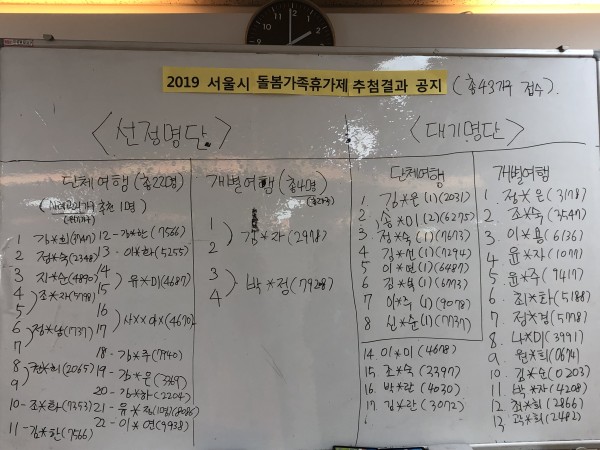 2019 서울시 돌봄가족휴가제 추첨결과 공지 (총43가구 접수)
<선정명단>
단체여행 (총22명)
추천 1명)
1 김*희(3747)
2 정*숙(2348)
3 지*순(4890)
4 조*자(5798)
5
6 정*남(1737)
7
8 전*희(2065)
9
10 - 조*화(7353)
11 - 김*한(7566)
12 - 김*한(7566)
13 - 이*화(5255)
14
15 유*미(4687)
16
17 사**아*(4670)
18 - 김*주(7940)
19 - 김*은(3369)
20 - 김*하(2204)
21 - 유*정(1명)(8086)
22 - 이*연(9938)
개별여행 (총4명)
1
2 강*자(2978)
3
4 박*정(7928)
<대기명단>
단체여행
1 김*운(1)(2031)
2 송*미(2)(6275)
3 정*숙(1)(7673)
4 김*선(1)(7294)
5 이*연(1)(6487)
6 김*복(1)(6773)
7 이*주(1)(9078)
8 신*순(1)(7737)
14 이*미(4678)
15 조*숙(3397)
16 박*란(4030)
17 김*란(3072)
개별여행
1. 정*은(3178)
2 조*숙(3547)
3 이*용(6136)
4 윤*자(1077)
5 윤*주(9417)
6 최*화(5188)
7 정*경(5778)
8. 나*미(3991)
9. 원*희(0674)
10 김*순(0203)
11 박*자(4208)
12 최*희(2866)
13 곽*희(2482)